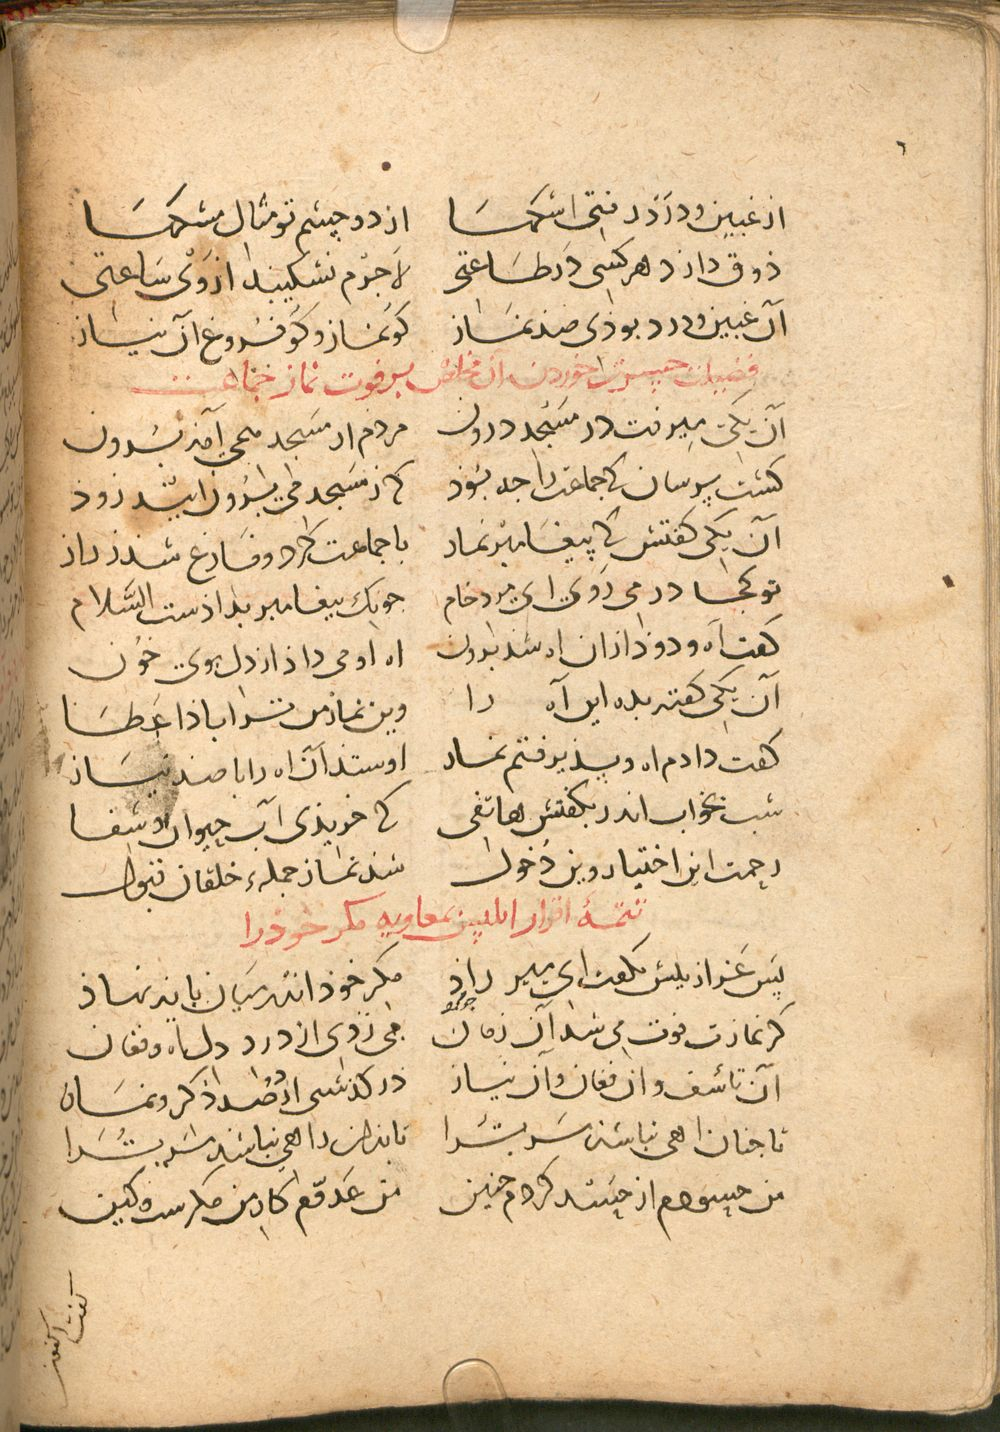 ٦
از غبین و درد رفتی اشکها از دو چشم تو مثال مشکها
ذوق دارد هر کسی در طاعتی لاجرم نشکیبد از وی ساعتی
آن غبین و درد بوذی صد نماز کو نماز و کو فروغ آن نیاز
فضیلت حسرت خوردن آن مخلص بر فوت نماز جماعت
آن یکی میرفت در مسجد درون مردم از مسجد همی آمذ برون
کشت پرسان کی جماعت را جه بوذ کی ز مسجد می برون ایند زوذ
آن یکی کفتش کی پیغامبر نماز با جماعت کرد و فارغ شذ ز راز
تو کجا در می روی ای مرد خام جونک پیغامبر بداذست السلام
کفت آه و دوذ از ان اه شذ برون اه او می داذ از دل بوی خون
آن یکی کفتا بده این آه را وین نماز من ترا باذا عطا
کفت دادم اه و پذیرفتم نماز او ستذ آن اه را با صذ نیاز
شب بخواب اندر بکفتش هاتفی کی خریذی آب حیوان و شفا
حرمت این اختیار و این دخول شذ نماز جمله خلقان قبول
تتمهٔ اقرار ابلیس بمعاویه مکر خوذ را
پس عزازیلش بکفت ای میر راد مکر خوذ اندر میان بایذ نهاذ
کر نمازت فوت می شد آن زمان می زدی از درد دل اه و فغان
آن تأسف و ان فغان و آن نیاز در کذشتی از دو صد ذکر و نماز
تا جنان اهی نباشذ مر ترا تا بذان راهی نباشذ مر ترا
من حسودم از حسد کردم جنین من عدوم کار من مکرست و کین
کفت اکنون